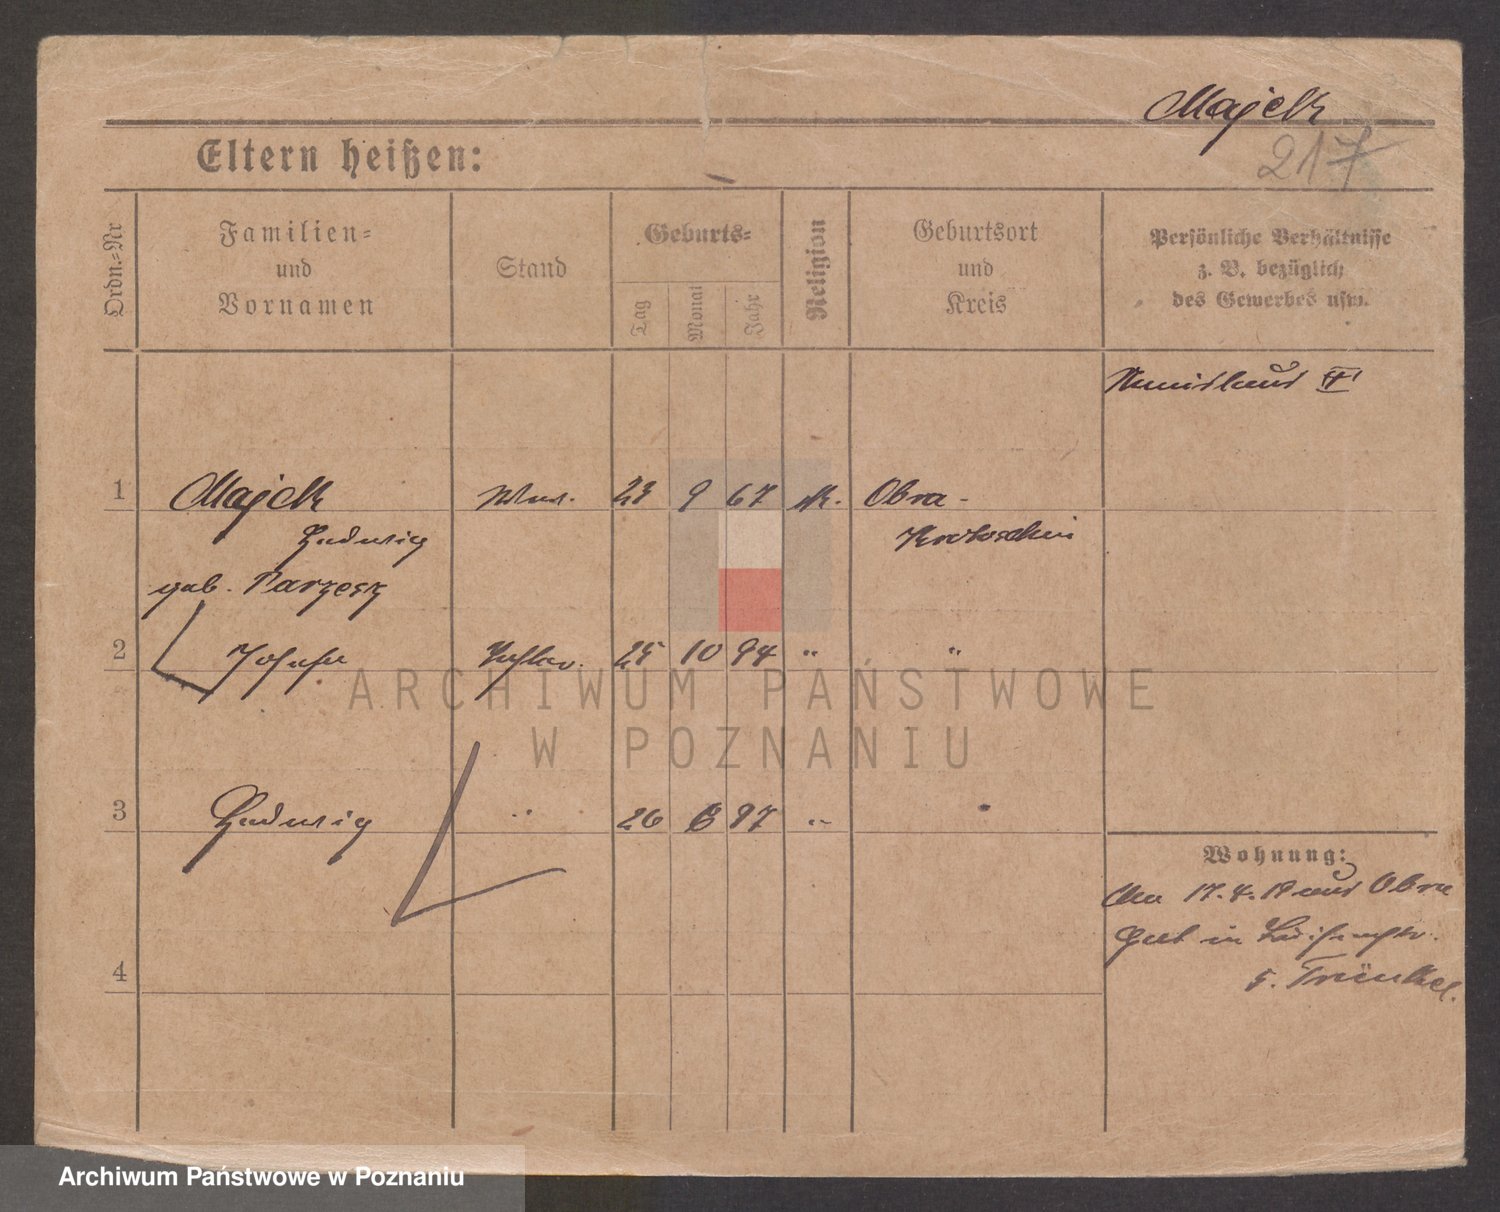 Majcック
217
Eltern heißen:
Ordn.-Nr
Familien-
und
Vornamen
Stand
Geburts-
Tag
Monat
Jahr
Religion
Geburtsort
und
Kreis
Persönliche Verhältnisse
z. B. bezüglich
des Gewerbes usw.
1 Majchk Wwe. 23 9 67 K. Obra -
Hedwig Krotoschin
geb. Parzesz
2 Josefa Tochter. 25 10 94 " "
3 Hedwig " 26 6 97 " "
Wohnung:
Am 17.4.18 aus Obra
Gut in
b. Fränkel.
4
ARCHIWUM PAŃSTWOWE
W POZNANIU
Archiwum Państwowe w Poznaniu